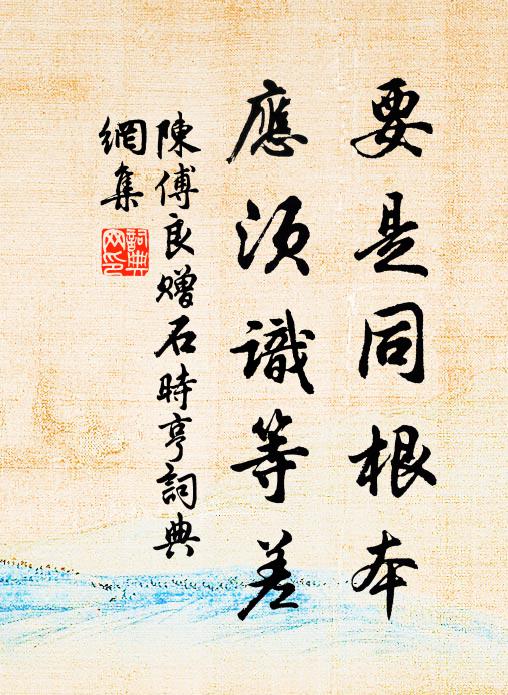 要是同根本
應須識等差
陳傅良贈石時亨詞典
網集
詞典網印